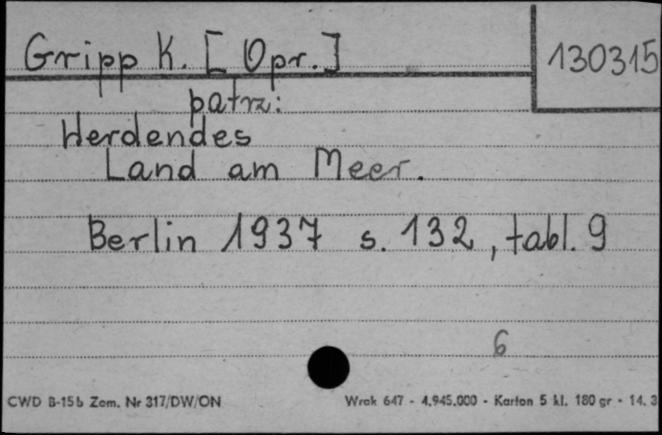 Gripp K. [Opr.]
130315
patrz:
Werdendes
Land am Meer.
Berlin 1937 s. 132, tabl. 9
6
CWD B-15b Zam. Nr 317/DW/ON
Wrak 647 - 4.945.000 - Karton 5 kl. 180 gr - 14. 3